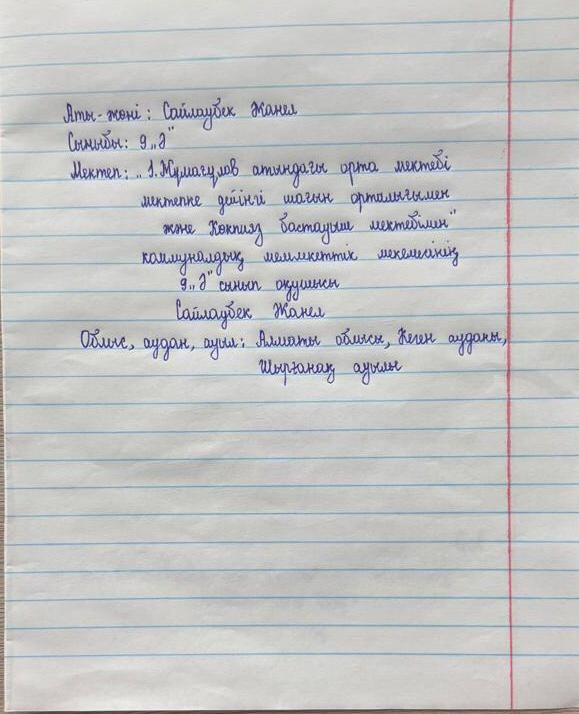 Аты-жөні: Сайлаубек Жанел
Сыныбы: 9 „Ә"
Мектеп: „І.Жұмағұлов атындағы орта мектебі
мектепке дейінгі шағын орталығымен
және Көкпияз бастауыш мектебімен"
коммуналдық мемлекеттік мекемесінің
9 „Ә" сынып оқушысы
Сайлаубек Жанел
Облыс, аудан, ауыл: Алматы облысы, Кеген ауданы,
Шырғанақ ауылы